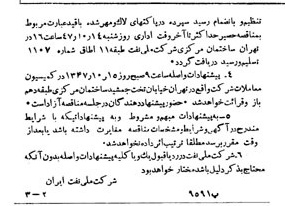 تنظیم و بانضمام رسید سپرده در پاکتهای لاک و مهر شده باقید عبارت مربوط
بمناقصه حصیر حداکثر تا آخر وقت اداری روز شنبه ۴۷/۱۰/۱۴ ساعت ۱۶ در
تهران ساختمان مرکزی شرکت ملی نفت طبقه ۱۱ اطاق شماره ۱۱۰۷
تسلیم و رسید دریافت گردد.
۴ـ پیشنهادات واصله ساعت ۹ صبح روز ۱۳۴۷/۱۰/۱۵ در کمیسیون
معاملات شرکت واقع در تهران خیابان تخت جمشید ساختمان مرکزی طبقه
باز و قرائت خواهد شد حضور پیشنهاد دهندگان در جلسه مناقصه آزاد است.
۵ـ به پیشنهادات مبهم و مشروط و به پیشنهاداتیکه با شرایط
مندرج در آگهی و شرایط و مشخصات مناقصه مغایرت داشته باشد یا بعد از
وقت مقرر برسد مطلقا ترتیب اثر داده نخواهد شد.
۶ـ شرکت ملی نفت در رد یا قبول یک و یا کلیه پیشنهادات واصله بدون آنکه
محتاج بذکر دلیل باشد مختار خواهد بود
شرکت ملی نفت ایران
پ ۹۵۹۱
۳ - ۲